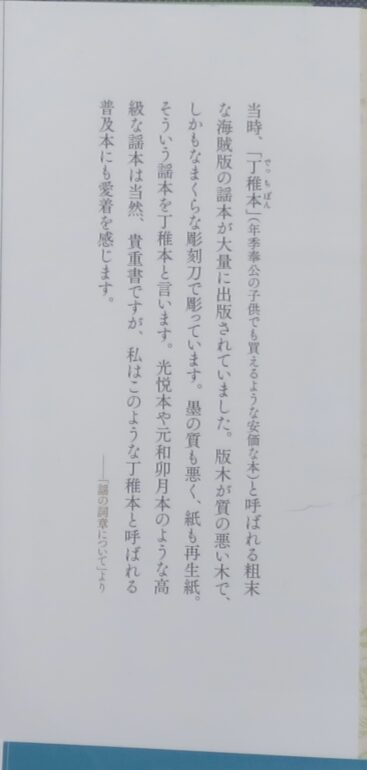 当時、「丁稚本」(年季奉公の子供でも買えるような安価な本)と呼ばれる粗末
でっちぼん
な海賊版の謡本が大量に出版されていました。版木が質の悪い木で、
しかもなまくらな彫刻刀で彫っています。墨の質も悪く、紙も再生紙。
そういう謡本を丁稚本と言います。光悦本や元和卯月本のような高
級な謡本は当然、貴重書ですが、私はこのような丁稚本と呼ばれる
普及本にも愛着を感じます。
——「謡の詞章について」より